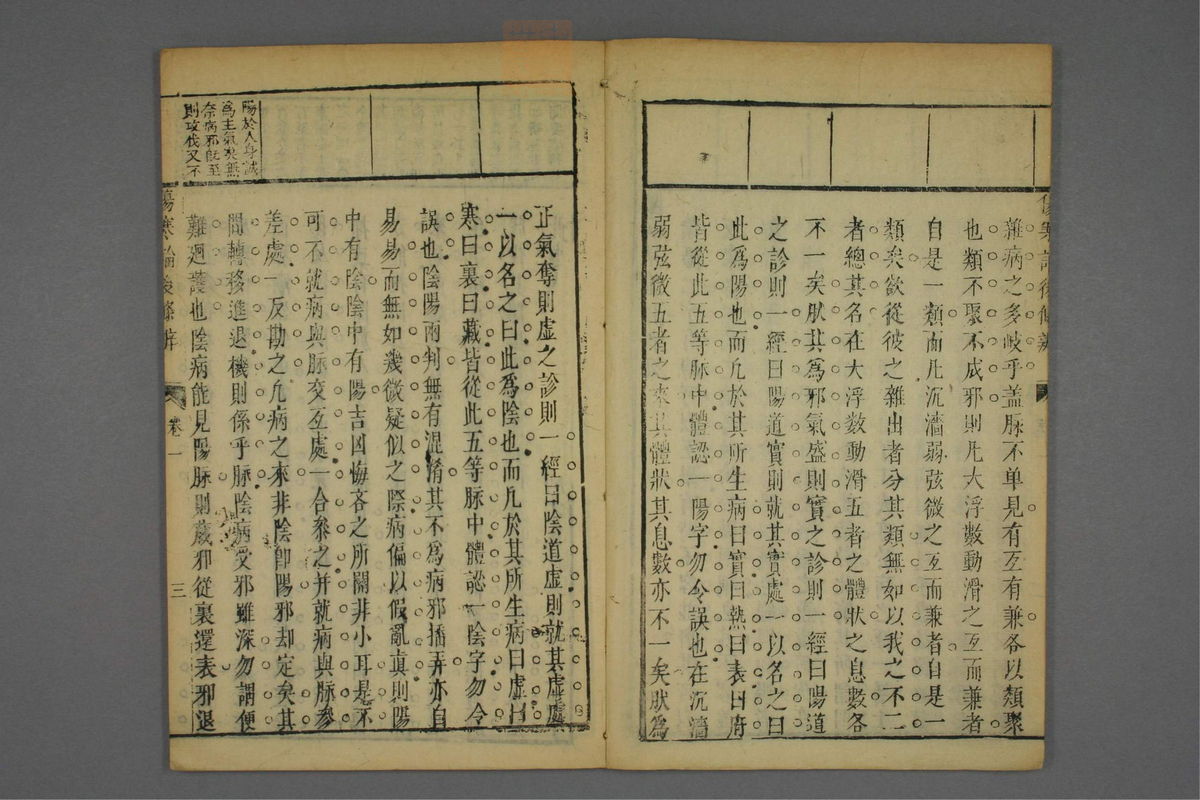 雜病之多岐乎盖脉不单見有互有兼各以類聚
也類不聚不成邪則凡大浮數動滑之互而兼者
自是一類而凡沉濇弱弦微之互而兼者自是一
類矣欲從彼之雜出者分其類無如以我之不二
者總其名在大浮數動滑五者之體狀之息數各
不一矣狀其為邪氣盛則實之診則一經曰陽道
之診則一經曰陽道實則就其實處一以名之曰
此為陽也而凡於其所生病曰實曰熱曰表曰府
皆從此五等脉中體認一陽字勿令誤也在沉濇
弱弦微五者之來其體狀其息數亦不一矣狀為
正氣奪則虛之診則一經曰陰道虛則就其虛處
一以名之曰此為陰也而凡於其所生病曰虛曰
寒曰裏曰藏皆從此五等脉中體認一陰字勿令
誤也陰陽兩判無有混淆其不為病邪播弄亦自
易易而無如幾微疑似之際病偏以假亂真則陽
中有陰陰中有陽吉凶悔吝之所關非小耳是不
可不就病與脉交互處一合叅之并就病與脉參
差處一反勘之凡病之來非陰卽陽邪却定矣其
間轉移進退機則係乎脉陰病受邪雖深勿謂便
難迴護也陰病能見陽脉則蔵邪從裏還表邪退
陽於人身誠
為主氣矣無
奈病邪旣至
則攻伐又不
傷寒論後條辨
卷一
三